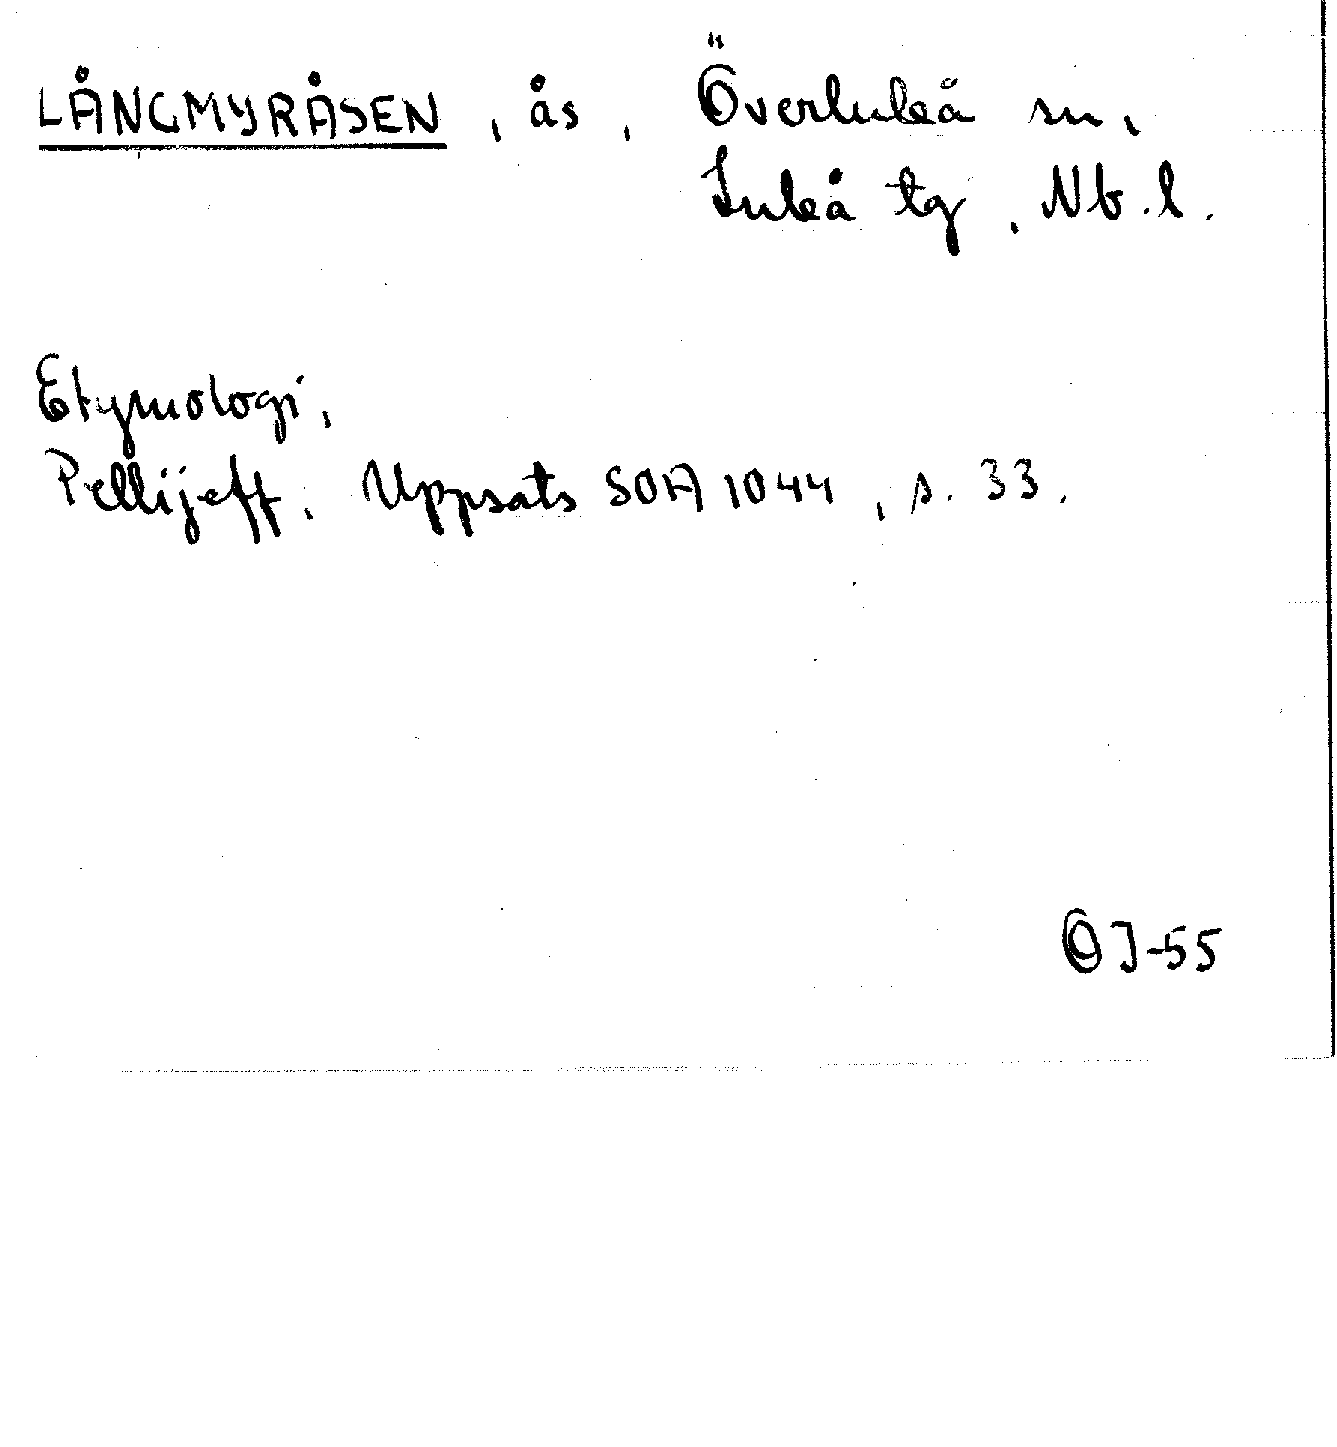 LÅNGMYRÅSEN, ås, Överluleå sn,
Luleå tg, Nb.l.
Etymologi,
Pellijeff, Uppsats SOA 1044, s. 33.
ÖJ-55